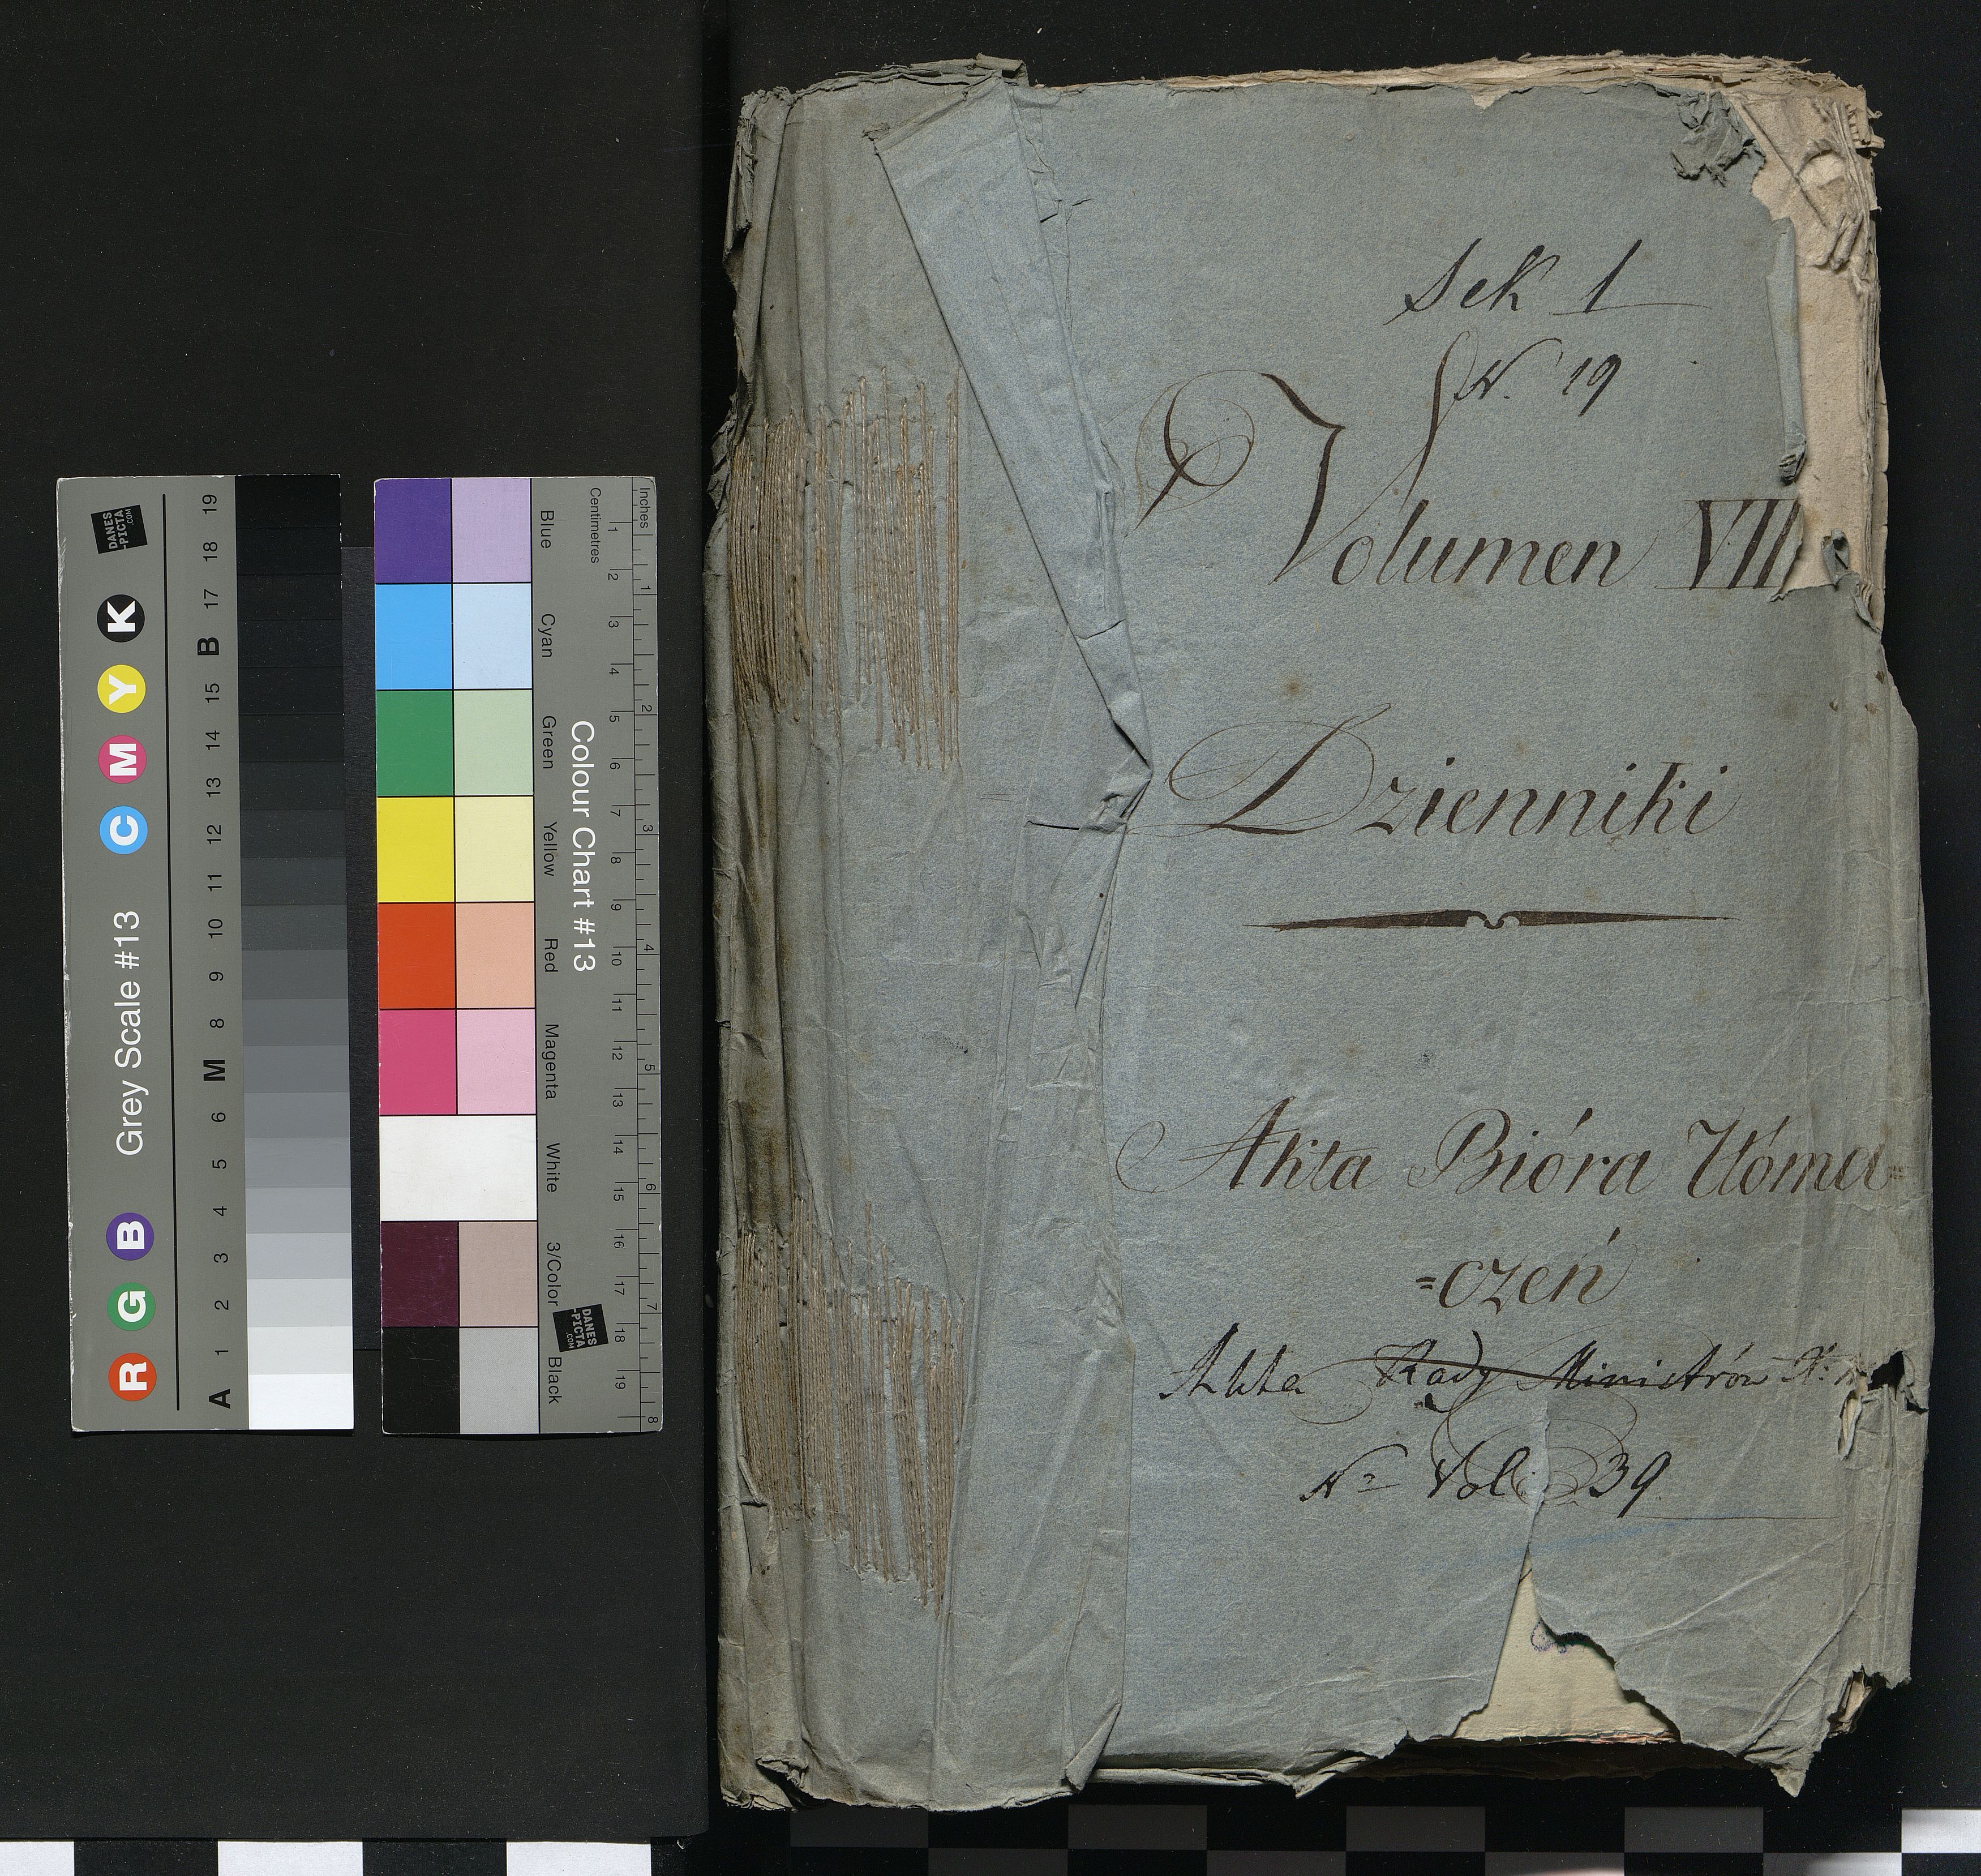 Sek 1
N. 19
Volumen VII
Dzienniki
Akta Bióra Tłóma=
=czeń
Akta Rady Ministrów
No Vol: 39
DANES
-PICTA
.COM
Grey Scale #13
R G B C M Y K
A 1 2 3 4 5 6 M 8 9 10 11 12 13 14 15 B 17 18 19
Colour Chart #13
Blue Cyan Green Yellow Red Magenta White 3/Color Black
Centimetres 1 2 3 4 5 6 7 8 9 10 11 12 13 14 15 16 17 18 19
Inches 1 2 3 4 5 6 7 8
DANES
-PICTA
.COM